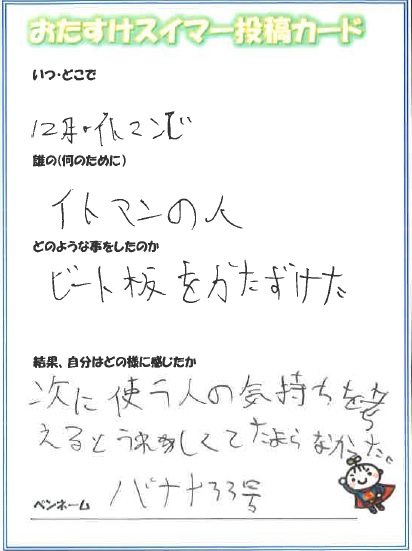 おたすけスイマー投稿カード
いつ・どこで
12月・イトマンじ
誰の(何のために)
イトマンの人
どのような事をしたのか
ビート板をかたずけた
結果、自分はどの様に感じたか
次に使う人の気持ちを考
えるとうれしくてたまらなかった。
ペンネーム バナナ33号